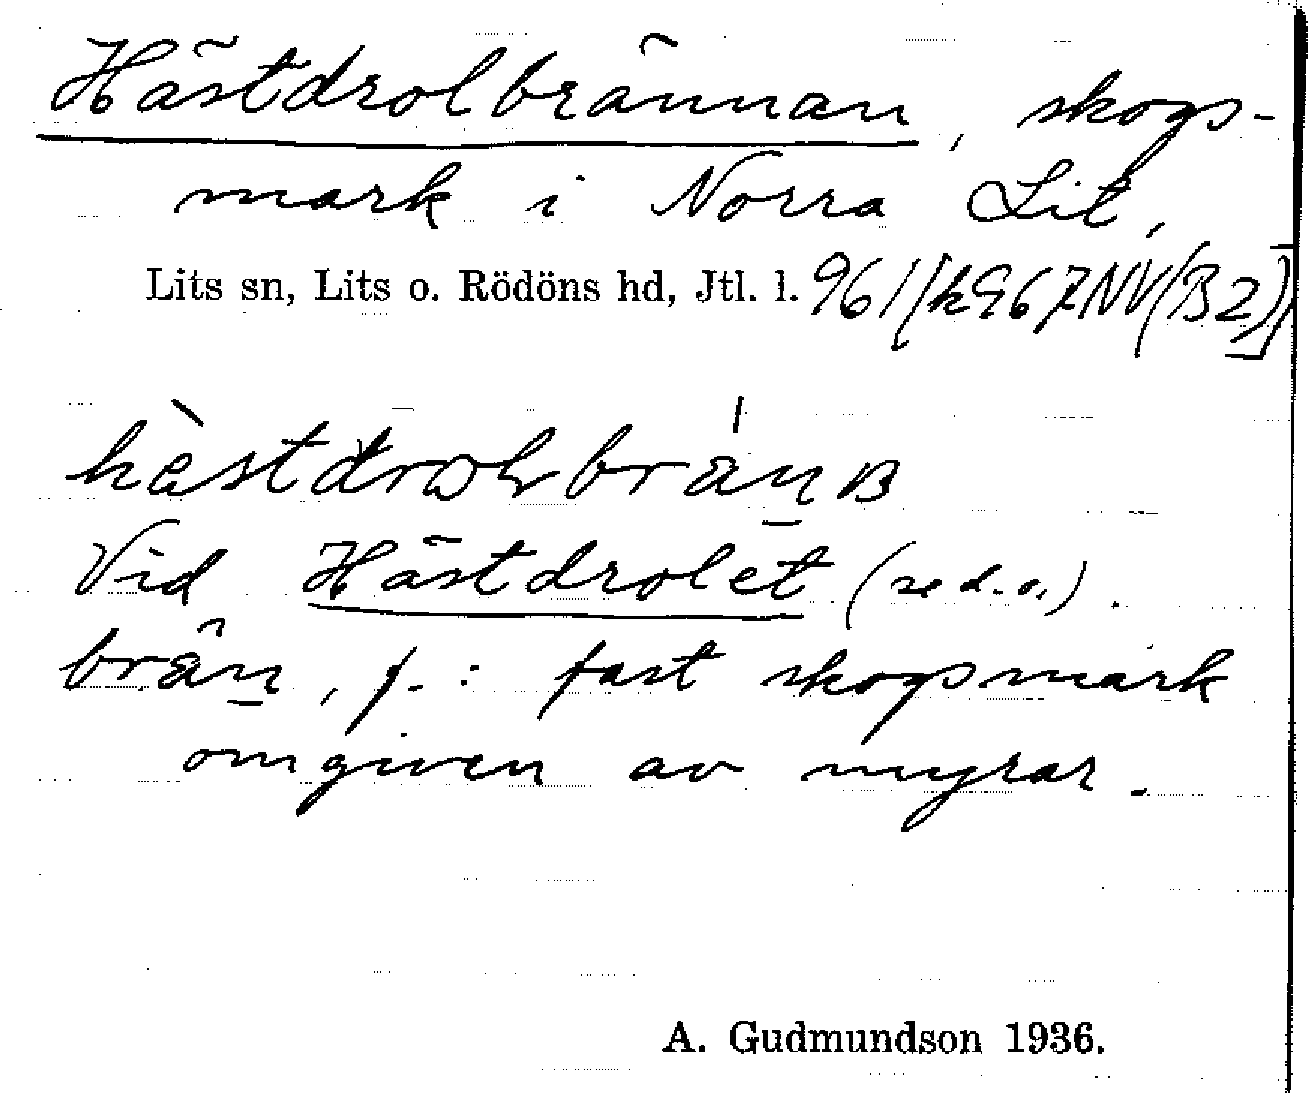 Hästdrolbrännan, skogs-
mark i Norra Lit,
Lits sn, Lits o. Rödöns hd, Jtl. l. 961/[k 967NV(B2)]
Vid Hästdrolet (se d.o.).
brän, f.: fast skogsmark
omgiven av myrar.
A. Gudmundson 1936.